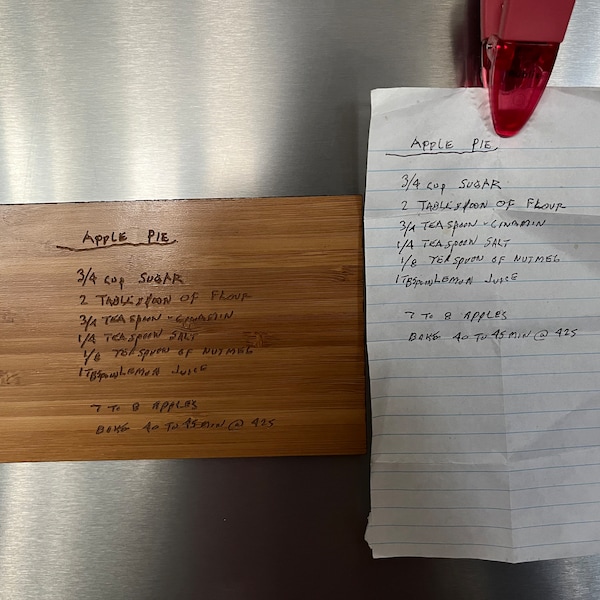 APPLE PIE
3/4 cup SUGAR
2 TABLESPOON OF FLOUR
3/4 TEASPOON - CINAMIN
1/4 TEASPOON SALT
1/8 TEASPOON OF NUTMEG
1 TBSPOON LEMON JUICE
7 TO 8 APPLES
BAKE 40 TO 45 MIN @ 425
APPLE PIE
3/4 cup SUGAR
2 TABLESPOON OF FLOUR
3/4 TEASPOON - CINAMIN
1/4 TEASPOON SALT
1/8 TEASPOON OF NUTMEG
1 TBSPOON LEMON JUICE
7 TO 8 APPLES
BAKE 40 TO 45 MIN @ 425